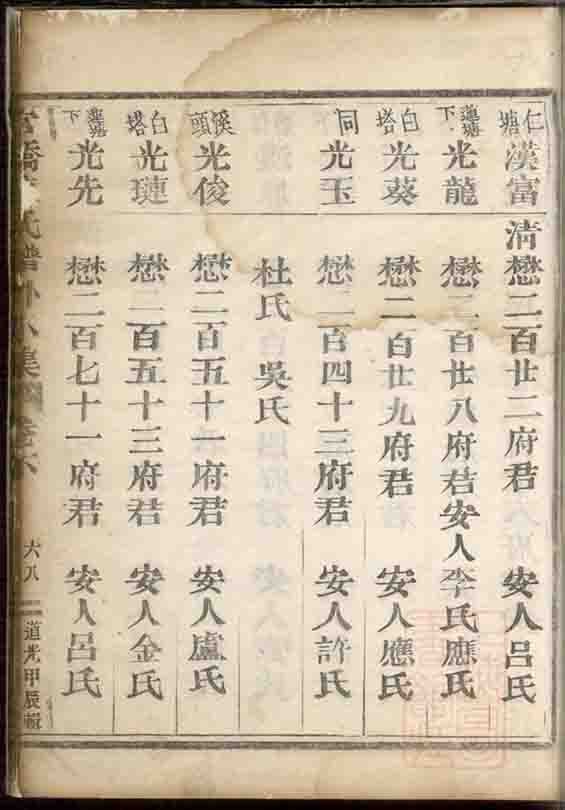 仁塘 漢富 清 懋二百廿二府君 安人呂氏
蓮塘下 光龍 懋二百廿八府君 安人李氏應氏
白塔 光葵 懋二百廿九府君 安人應氏
同 光玉 懋二百四十三府君 安人許氏
杜氏 吳氏
溪頭 光俊 懋二百五十一府君 安人盧氏
白塔 光璉 懋二百五十三府君 安人金氏
蓮塘下 光先 懋二百七十一府君 安人呂氏
氏譜外小集 卷六 六八 道光甲辰輯